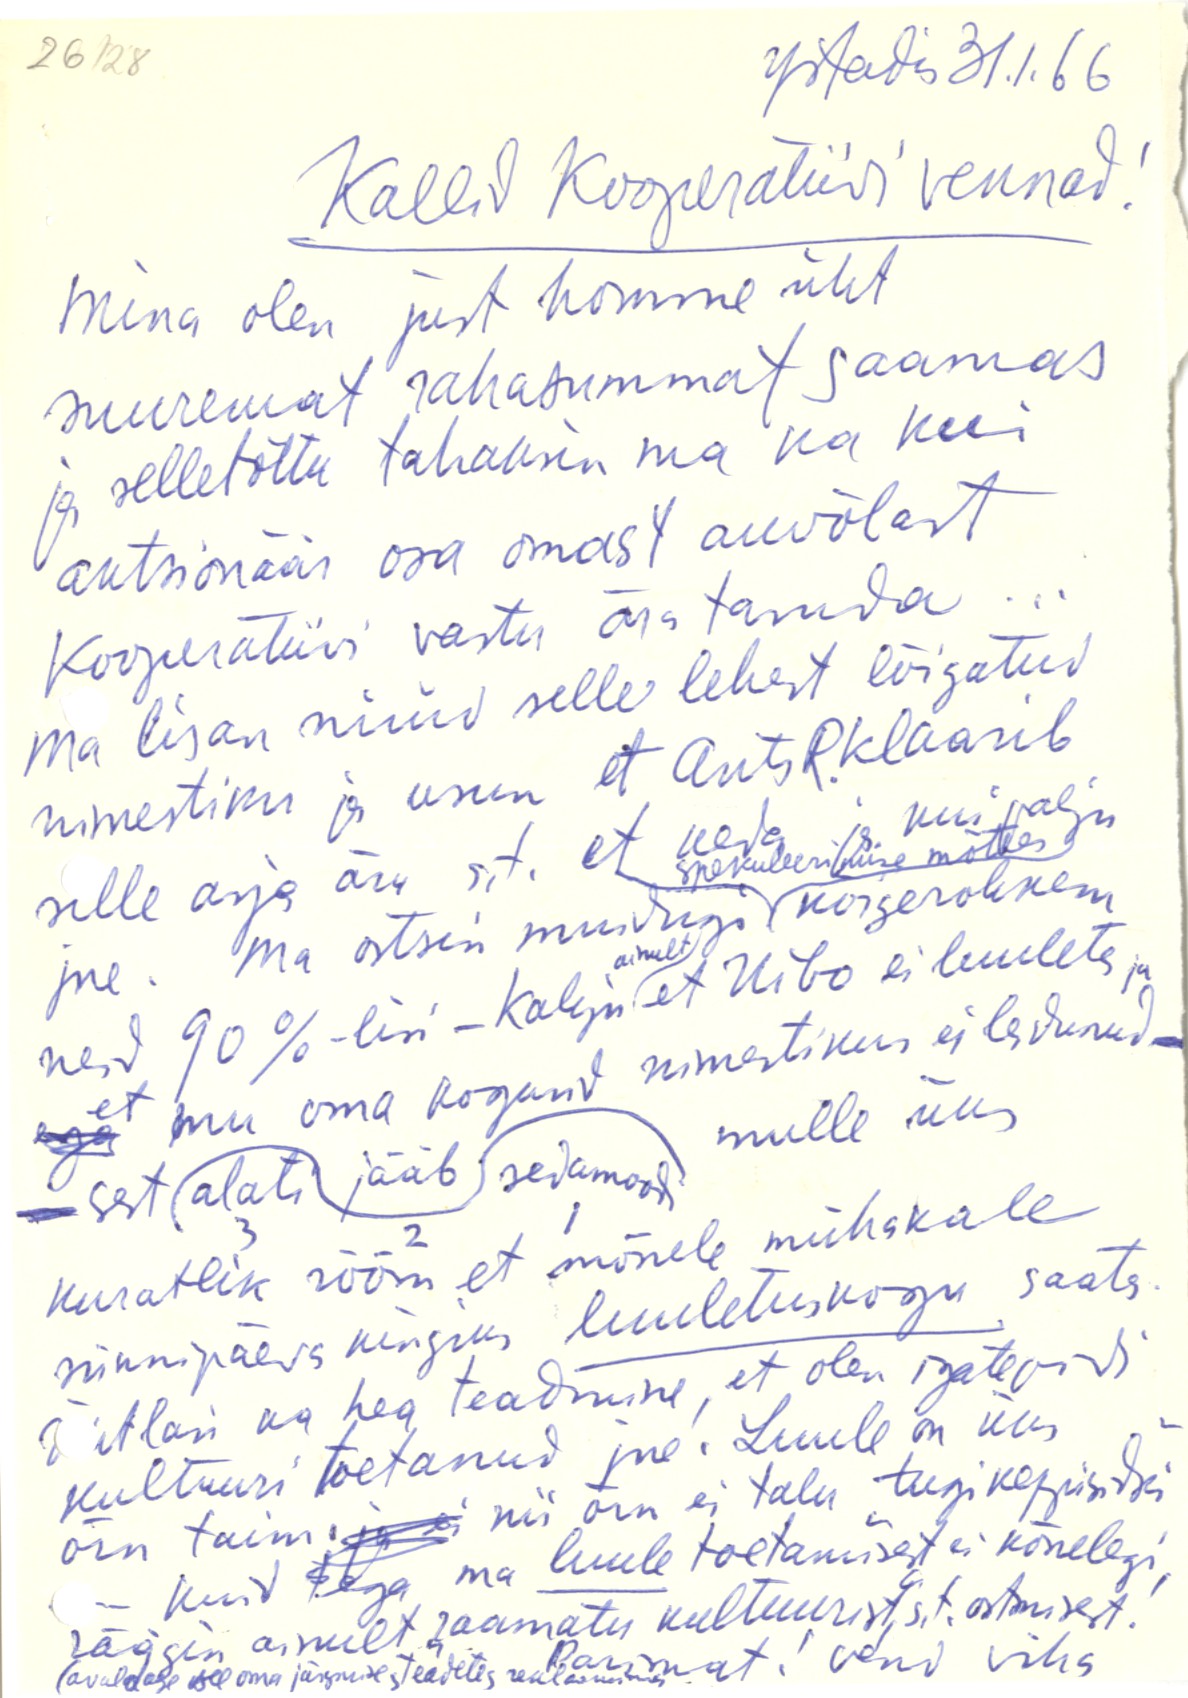 26/28
Ystadis 31.1.66
Kallid Kooperatiivi vennad!
Mina olen just homme üht
suuremat rahasummat saamas
ja selletõttu tahaksin ma ka kui
aktsionäär osa omast auvõlast
Kooperatiivi vastu ära tasuda ...
Ma lisan nüüd selle lehest lõigatud
nimestiku ja usun et Ants R. klaarib
selle asja ära s.t. et keda ja kui palju
jne. Ma ostsin muidugi spekuleerimise mõttes kõigerohkem
neid 90%-lisi – Kalju ainult et Uibo ei luuleta ja
et mu oma kogusid nimestikus ei leidunud –
– sest alati jääb sedamoodi mulle üks
3 2 1
kuratlik rõõm et mõnele mühakale
sünnipäeva kingiks luuletuskogu saata.
ka hea teadmine, et olen igatepidi
kultuuri toetanud jne. Luule on üks
õrn taim. nii õrn ei talu
– Kuid ega ma luule toetamisest ei kõnelegi,
räägin ainult raamatu kultuurist, s.t. ostmisest!
Parimat! vend